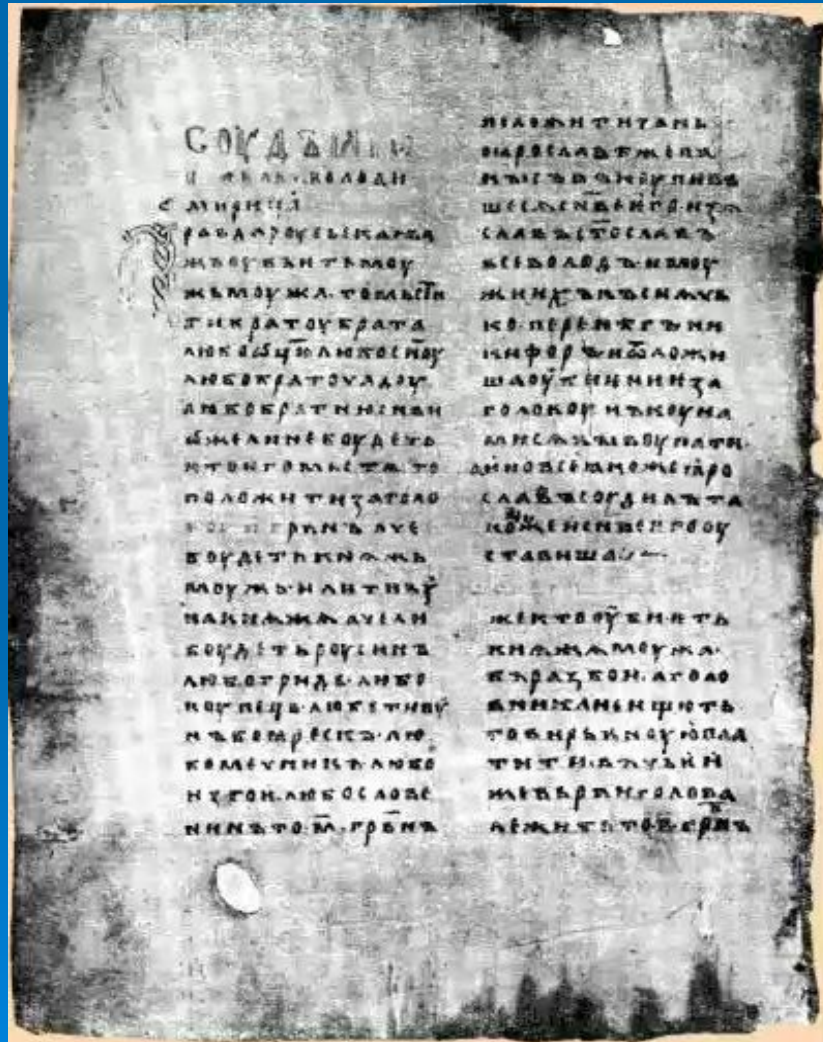 СОУДЪ
ВОЛОДИ
МИРИЦѦ
РАВДАРОУСЬСКАꙖ
ЖЬОУБЬИТЬМОУ
ЖЬМОУЖА·ТОМЬСТИ
ТИБРАТОУБРАТА
ЛЮБОѾЦЮ·ЛЮБОСН҃ОУ
ЛЮБОБРАТОУЧАДОУ
ЛЮБОБРАТНЮСН҃ВИ
ѾЖЕЛИНЕБОУДЕТЬ
КТОꙖГОМЬСТѦ·ТО
ПОЛОЖИТИЗАГОЛО
ГРВ҃НЪАЧЕ
БОУДЕТЬКНѦЖЬ
МОУЖЬ·ИЛИТИВОУ
НАКНѦЖѦ·АЧЕЛИ
БОУДЕТЬРОУСИНЪ
ЛЮБОГРИДЬ·ЛЮБО
КОУПЕЦЬ·ЛЮБОТИВОУ
НЪБОꙖРЕСКЪ·ЛЮ
БОМЕЧНИКЪ·ЛЮБО
ИЗГОИ·ЛЮБОСЛОВЕ
НИНЪ·ТО·М҃·ГРВ҃НЪ
ПОЛОЖИТИЗАНЬ
ПОꙖРОСЛАВѢЖЕПА
КЫСЪВЪКОУПИВЪ
ШЕСѦСН҃ВЕѤГО·ИЗѦ
СЛАВЪСТ҃ОСЛАВЪ
ВСЕВОЛОДЪ·ИМОУ
ЖИИХЪ
КО·ПЕРЕНѢГЪНИ
КИФОРЪ·ИѾЛОЖИ
ШАОУБИѤНИѤЗА
ГОЛОВОУ·НЪКОУНА
МИСѦВЫКОУПАТИ·
АИНОВСЕꙖКОЖЕꙖРО
СЛАВЪСОУДИЛЪТА
КОЖЕИСН҃ВЕѤГООУ
СТАВИША
ЖЕКТООУБИѤТЬ
КНѦЖѦМОУЖА·
ВЪРАЗБОИ·АГОЛО
ВНИКАНЕИЩЮТЬ
ТОВИРЬВНОУЮПЛА
ТИТИ·ВЪЧЬѤИ
ЖЕВЬРВИГОЛОВА
ЛЕЖИТЬ·ТО·П҃·ГРВ҃НЪ